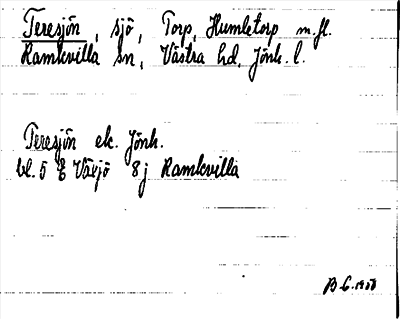 Teresjön, sjö, Torp, Humletorp m.fl.
Ramkvilla sn, Västra hd, Jönk. l.
Teresjön ek. Jönk.
bl. 5 E Växjö 8j Ramkvilla